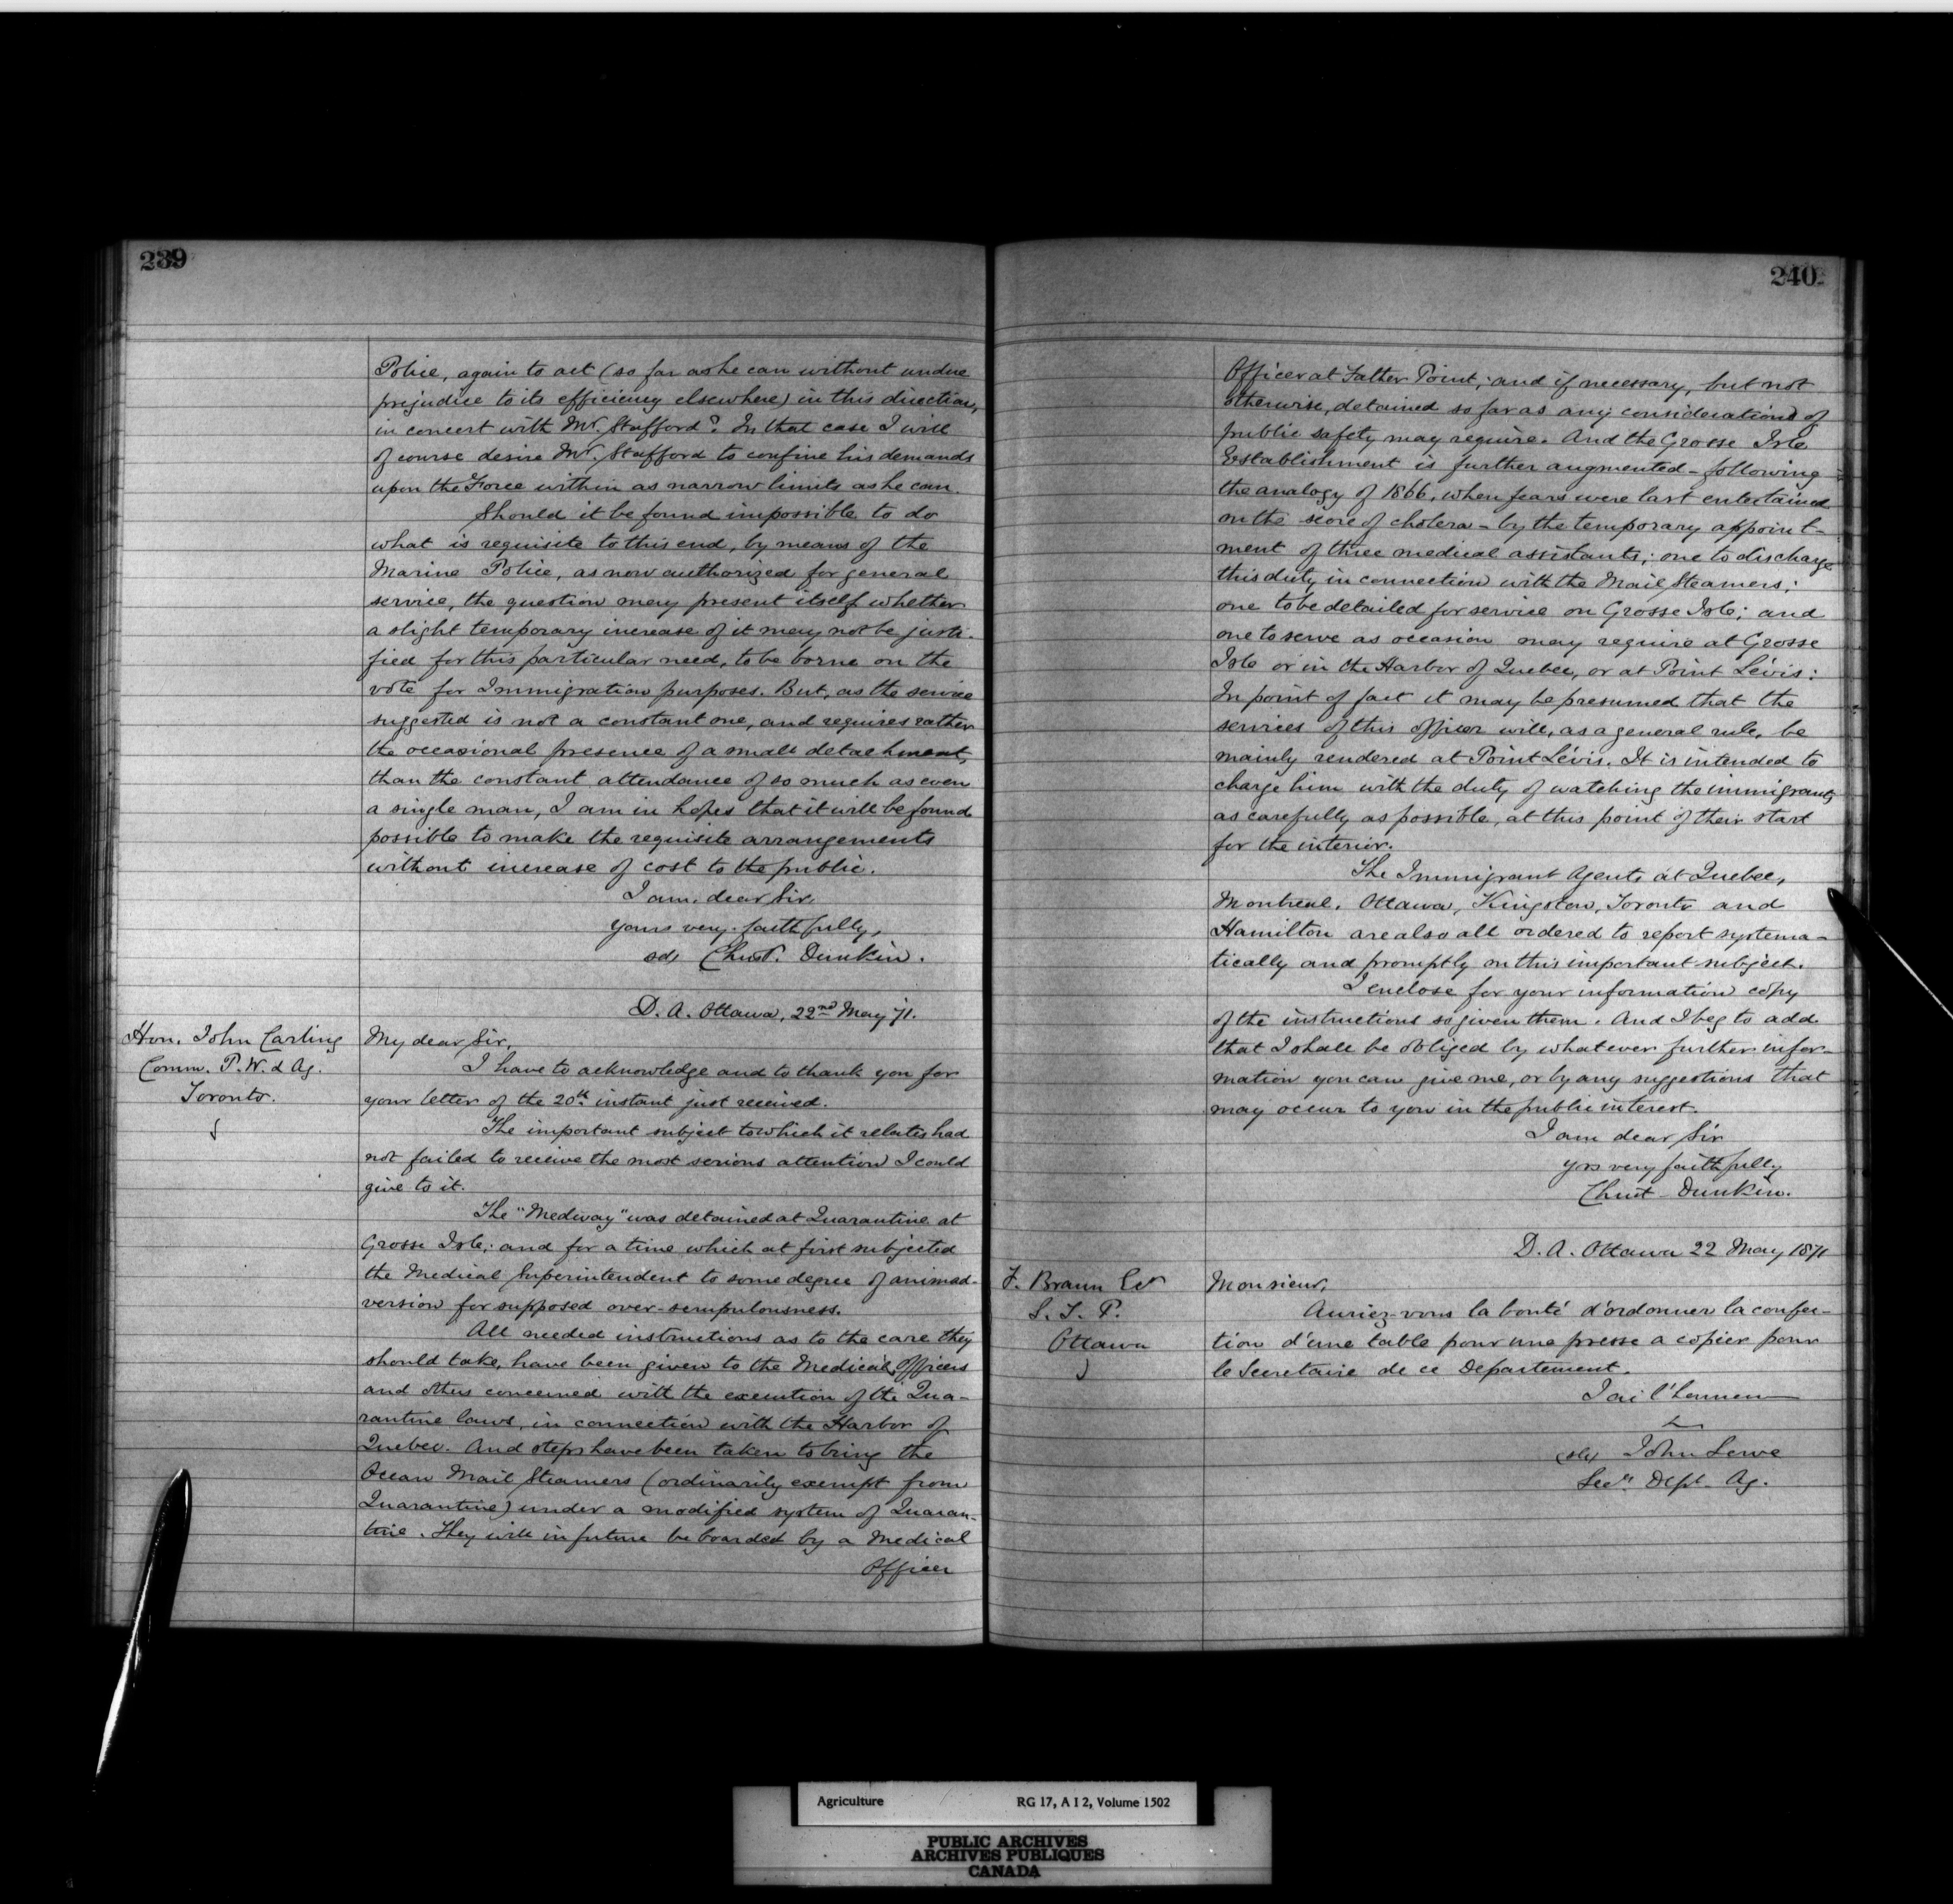 239
Police, again to act (so far as he can without undue
prejudice to its efficiency elsewhere) in this direction,
in concert with Mr. Stafford? In that case I will
of course desire Mr. Stafford to confine his demands
upon the Force within as narrow limits as he can.
Should it be found impossible to do
what is requisite to this end, by means of the
Marine Police, as now authorized for general
service, the question may present itself whether
a slight temporary increase of it may not be justi-
fied for this particular need, to be borne on the
vote for Immigration purposes. But, as the service
suggested is not a constant one, and requires rather
the occasional presence of a small detachment,
than the constant attendance of so much as even
a single man, I am in hopes that it will be found
possible to make the requisite arrangements
without increase of cost to the public.
I am, dear Sir,
yours very faithfully,
sd, Christ. Dunkin.
D. A. Ottawa, 22nd May 71.
Hon. John Carling
Comm. P. W. & Ag.
Toronto.
My dear Sir,
I have to acknowledge and to thank you for
your letter of the 20th instant just received.
The important subject to which it relates had
not failed to receive the most serious attention I could
give to it.
The "Medway" was detained at Quarantine at
Grosse Isle; and for a time which at first subjected
the Medical Superintendent to some degree of animad-
version for supposed over-scrupulousness.
All needed instructions as to the care they
should take, have been given to the Medical Officers
and others concerned with the execution of the Qua-
rantine laws, in connection with the Harbor of
Quebec. And steps have been taken to bring the
Ocean Mail Steamers (ordinarily exempt from
Quarantine) under a modified system of Quaran-
tine. They will in future be boarded by a Medical
Officer
240
Officer at Father Point; and if necessary, but not
otherwise, detained so far as any considerations of
public safety may require. And the Grosse Isle
Establishment is further augmented - following
the analogy of 1866, when fears were last entertained
on the score of cholera - by the temporary appoint-
ment of three medical assistants; one to discharge
this duty in connection with the Mail Steamers;
one to be detailed for service on Grosse Isle; and
one to serve as occasion may require at Grosse
Isle or in the Harbor of Quebec, or at Point Lévis:
In point of fact it may be presumed that the
services of this officer will, as a general rule, be
mainly rendered at Point Lévis. It is intended to
charge him with the duty of watching the immigrants
as carefully as possible, at this point of their start
for the interior.
The Immigrant Agents at Quebec,
Montreal, Ottawa, Kingston, Toronto and
Hamilton are also all ordered to report systema-
tically and promptly on this important subject.
I enclose for your information copy
of the instructions so given them. And I beg to add
that I shall be obliged by whatever further infor-
mation you can give me, or by any suggestions that
may occur to you in the public interest.
I am dear Sir
yrs very faithfully
Christ Dunkin.
D. A. Ottawa 22 May 1871
F. Braun Esr
S. T. P.
Ottawa
Monsieur,
Auriez-vous la bonté d'ordonner la confec-
tion d'une table pour une presse a copier pour
le Secretaire de ce Departement.
J'ai l'honneur
(sd) John Lowe
Secy Dept. Ag.
Agriculture RG 17, A I 2, Volume 1502
PUBLIC ARCHIVES
ARCHIVES PUBLIQUES
CANADA